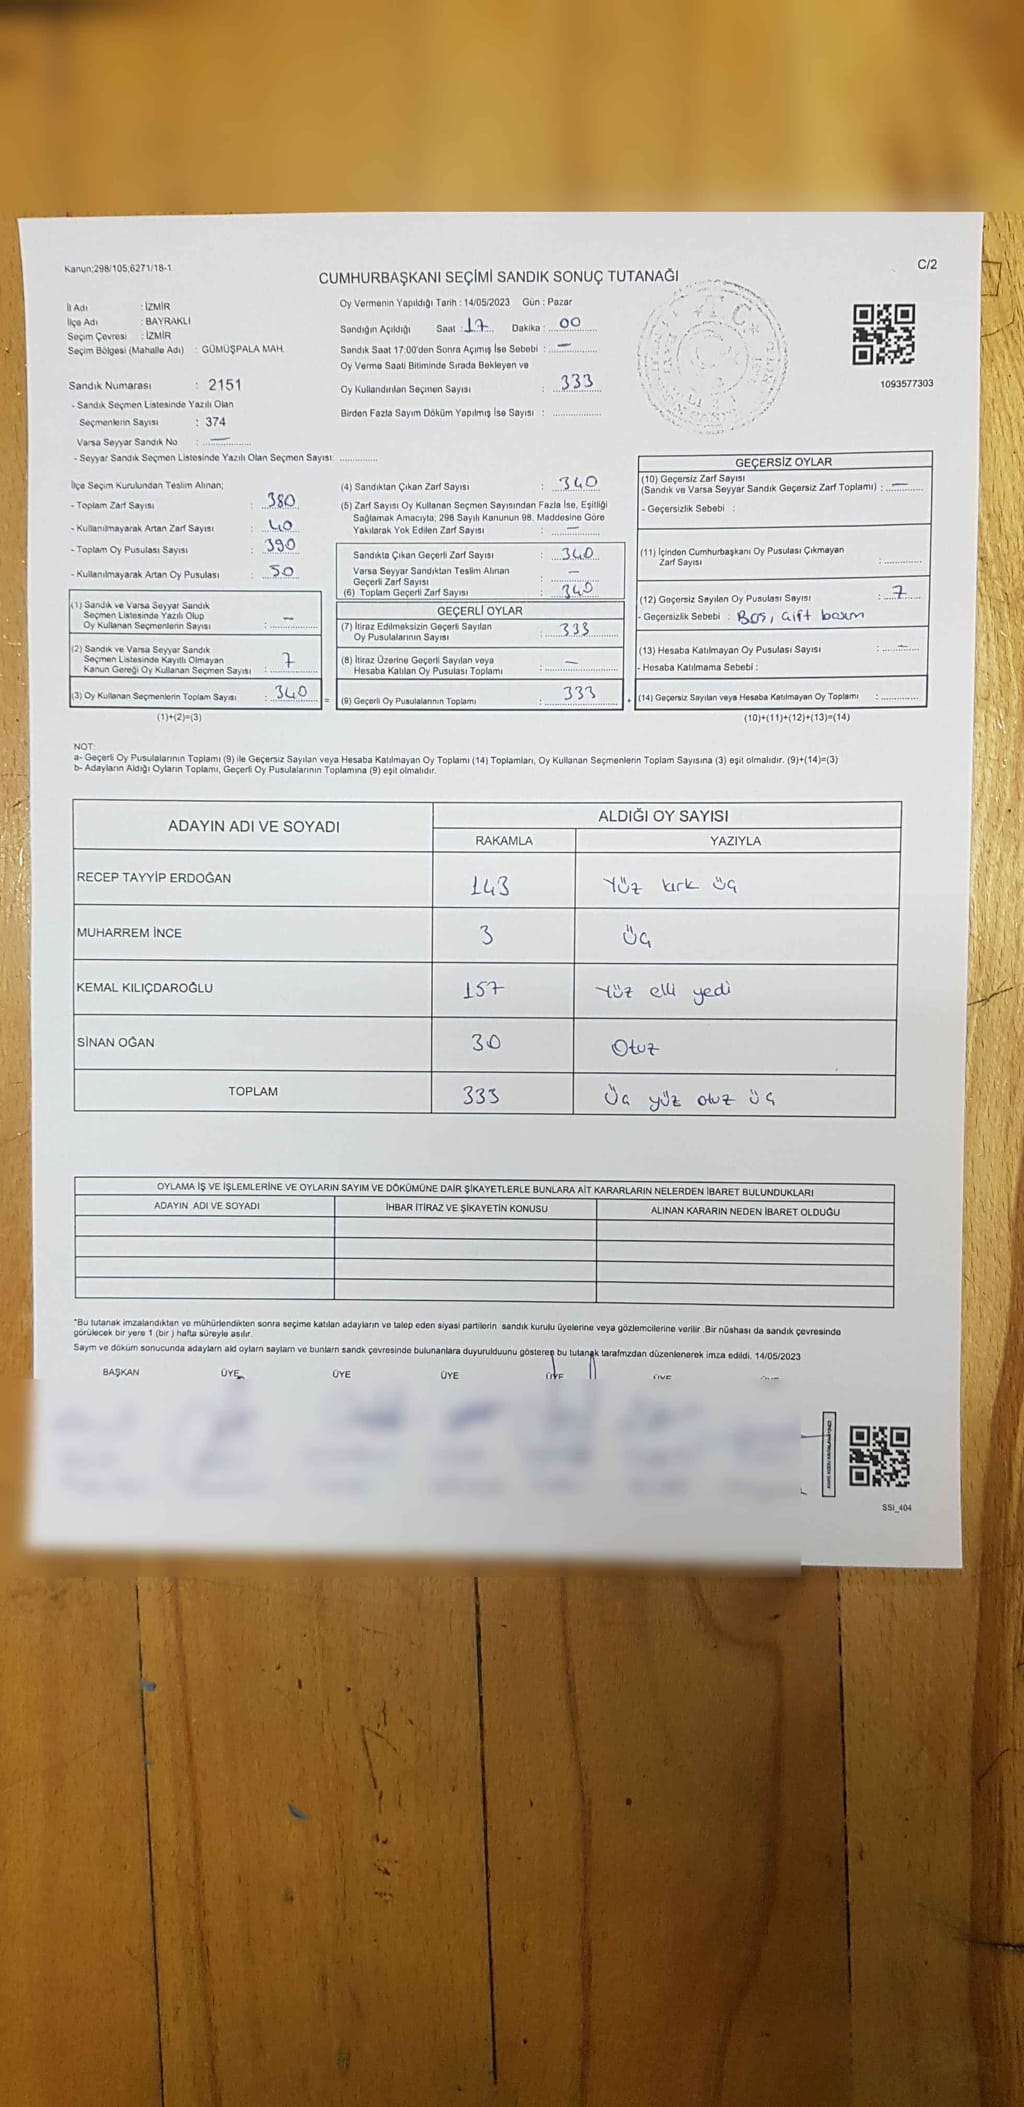 Kanun;298/105;6271/18-1
C/2
CUMHURBAŞKANI SEÇİMİ SANDIK SONUÇ TUTANAĞI
İl Adı : İZMİR
İlçe Adı : BAYRAKLI
Seçim Çevresi : İZMİR
Seçim Bölgesi (Mahalle Adı) : GÜMÜŞPALA MAH.
Sandık Numarası : 2151
- Sandık Seçmen Listesinde Yazılı Olan
Seçmenlerin Sayısı : 374
Varsa Seyyar Sandık No : —
- Seyyar Sandık Seçmen Listesinde Yazılı Olan Seçmen Sayısı: ..............
Oy Vermenin Yapıldığı Tarih : 14/05/2023 Gün : Pazar
Sandığın Açıldığı Saat : 17 Dakika : 00
Sandık Saat 17:00'den Sonra Açımış İse Sebebi : —
Oy Verme Saati Bitiminde Sırada Bekleyen ve
Oy Kullandırılan Seçmen Sayısı : 333
Birden Fazla Sayım Döküm Yapılmış İse Sayısı : ..............
1093577303
İlçe Seçim Kurulundan Teslim Alınan;
- Toplam Zarf Sayısı : 380
- Kullanılmayarak Artan Zarf Sayısı : 40
- Toplam Oy Pusulası Sayısı : 390
- Kullanılmayarak Artan Oy Pusulası : 50
(1) Sandık ve Varsa Seyyar Sandık
Seçmen Listesinde Yazılı Olup
Oy Kullanan Seçmenlerin Sayısı : —
(2) Sandık ve Varsa Seyyar Sandık
Seçmen Listesinde Kayıtlı Olmayan
Kanun Gereği Oy Kullanan Seçmen Sayısı : 7
(3) Oy Kullanan Seçmenlerin Toplam Sayısı : 340 =
(1)+(2)=(3)
(4) Sandıktan Çıkan Zarf Sayısı : 340
(5) Zarf Sayısı Oy Kullanan Seçmen Sayısından Fazla İse, Eşitliği
Sağlamak Amacıyla; 298 Sayılı Kanunun 98. Maddesine Göre
Yakılarak Yok Edilen Zarf Sayısı : —
Sandıkta Çıkan Geçerli Zarf Sayısı : 340
Varsa Seyyar Sandıktan Teslim Alınan
Geçerli Zarf Sayısı : —
(6) Toplam Geçerli Zarf Sayısı : 340
GEÇERLİ OYLAR
(7) İtiraz Edilmeksizin Geçerli Sayılan
Oy Pusulalarının Sayısı : 333
(8) İtiraz Üzerine Geçerli Sayılan veya
Hesaba Katılan Oy Pusulası Toplamı : —
(9) Geçerli Oy Pusulalarının Toplamı : 333 +
GEÇERSİZ OYLAR
(10) Geçersiz Zarf Sayısı
(Sandık ve Varsa Seyyar Sandık Geçersiz Zarf Toplamı) : —
- Geçersizlik Sebebi :
(11) İçinden Cumhurbaşkanı Oy Pusulası Çıkmayan
Zarf Sayısı : ..............
(12) Geçersiz Sayılan Oy Pusulası Sayısı : 7
- Geçersizlik Sebebi : Boş, çift basım
(13) Hesaba Katılmayan Oy Pusulası Sayısı : —
- Hesaba Katılmama Sebebi :
(14) Geçersiz Sayılan veya Hesaba Katılmayan Oy Toplamı : ..............
(10)+(11)+(12)+(13)=(14)
NOT:
a- Geçerli Oy Pusulalarının Toplamı (9) ile Geçersiz Sayılan veya Hesaba Katılmayan Oy Toplamı (14) Toplamları, Oy Kullanan Seçmenlerin Toplam Sayısına (3) eşit olmalıdır. (9)+(14)=(3)
b- Adayların Aldığı Oyların Toplamı, Geçerli Oy Pusulalarının Toplamına (9) eşit olmalıdır.
ADAYIN ADI VE SOYADI ALDIĞI OY SAYISI
RAKAMLA YAZIYLA
RECEP TAYYİP ERDOĞAN 143 Yüz kırk üç
MUHARREM İNCE 3 Üç
KEMAL KILIÇDAROĞLU 157 Yüz elli yedi
SİNAN OĞAN 30 Otuz
TOPLAM 333 Üç yüz otuz üç
OYLAMA İŞ VE İŞLEMLERİNE VE OYLARIN SAYIM VE DÖKÜMÜNE DAİR ŞİKAYETLERLE BUNLARA AİT KARARLARIN NELERDEN İBARET BULUNDUKLARI
ADAYIN ADI VE SOYADI İHBAR İTİRAZ VE ŞİKAYETİN KONUSU ALINAN KARARIN NEDEN İBARET OLDUĞU
*Bu tutanak imzalandıktan ve mühürlendikten sonra seçime katılan adayların ve talep eden siyasi partilerin sandık kurulu üyelerine veya gözlemcilerine verilir .Bir nüshası da sandık çevresinde
görülecek bir yere 1 (bir ) hafta süreyle asılır.
Saym ve döküm sonucunda adaylarn ald oylarn saylarn ve bunlarn sandk çevresinde bulunanlara duyurulduunu gösteren bu tutanak tarafmzdan düzenlenerek imza edildi. 14/05/2023
BAŞKAN ÜYE ÜYE ÜYE ÜYE ÜYE
SSI_404